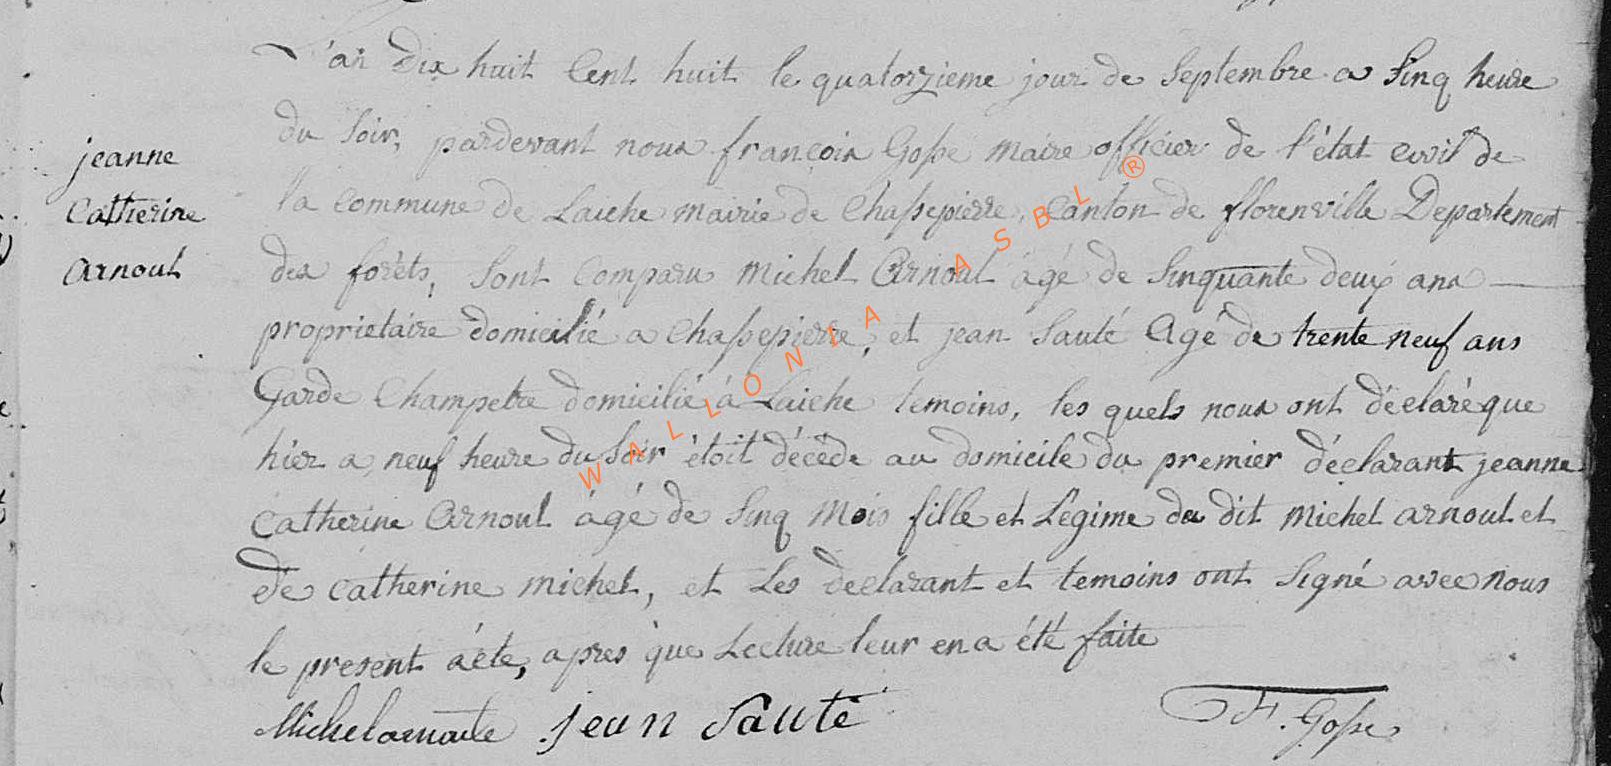 L'an dix huit Cent huit le quatorzieme jour de Septembre a Sinq heure
du Soir, pardevant nous françois Gosse maire officier de l'état civil de
jeanne
la commune de Laiche mairie de Chassepierre, Canton de florenville Departement
Catherine
des forêts, Sont Comparu Michel Arnoul âgé de Sinquante deux ans
Arnoul
proprietaire domicilié a Chassepierre, et jean Sauté Agé de trente neuf ans
Garde Champetre domicilié à Laiche temoins, les quels nous ont déclaré que
hier a neuf heure du Soir étoit décédé au domicile du premier déclarant jeanne
Catherine Arnoul âgé de Sinq Mois fille et Legime du dit Michel arnoul et
de Catherine Michel, et Les declarant et temoins ont Signé avec nous
le present acte, apres que Lecture leur en a été faite
Michel arnoule jean Sauté F. Gosse
WALLONIA ASBL ®